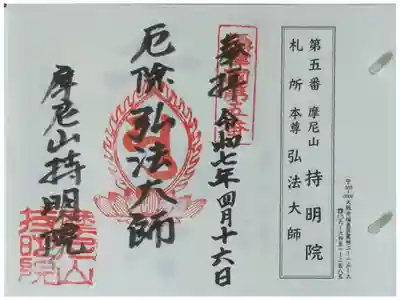 第五番 摩尼山 持明院
札所 本尊 弘法大師
奉拝 令和七年四月十六日
厄除 弘法大師
摩尼山持明院
摩尼山
持明院